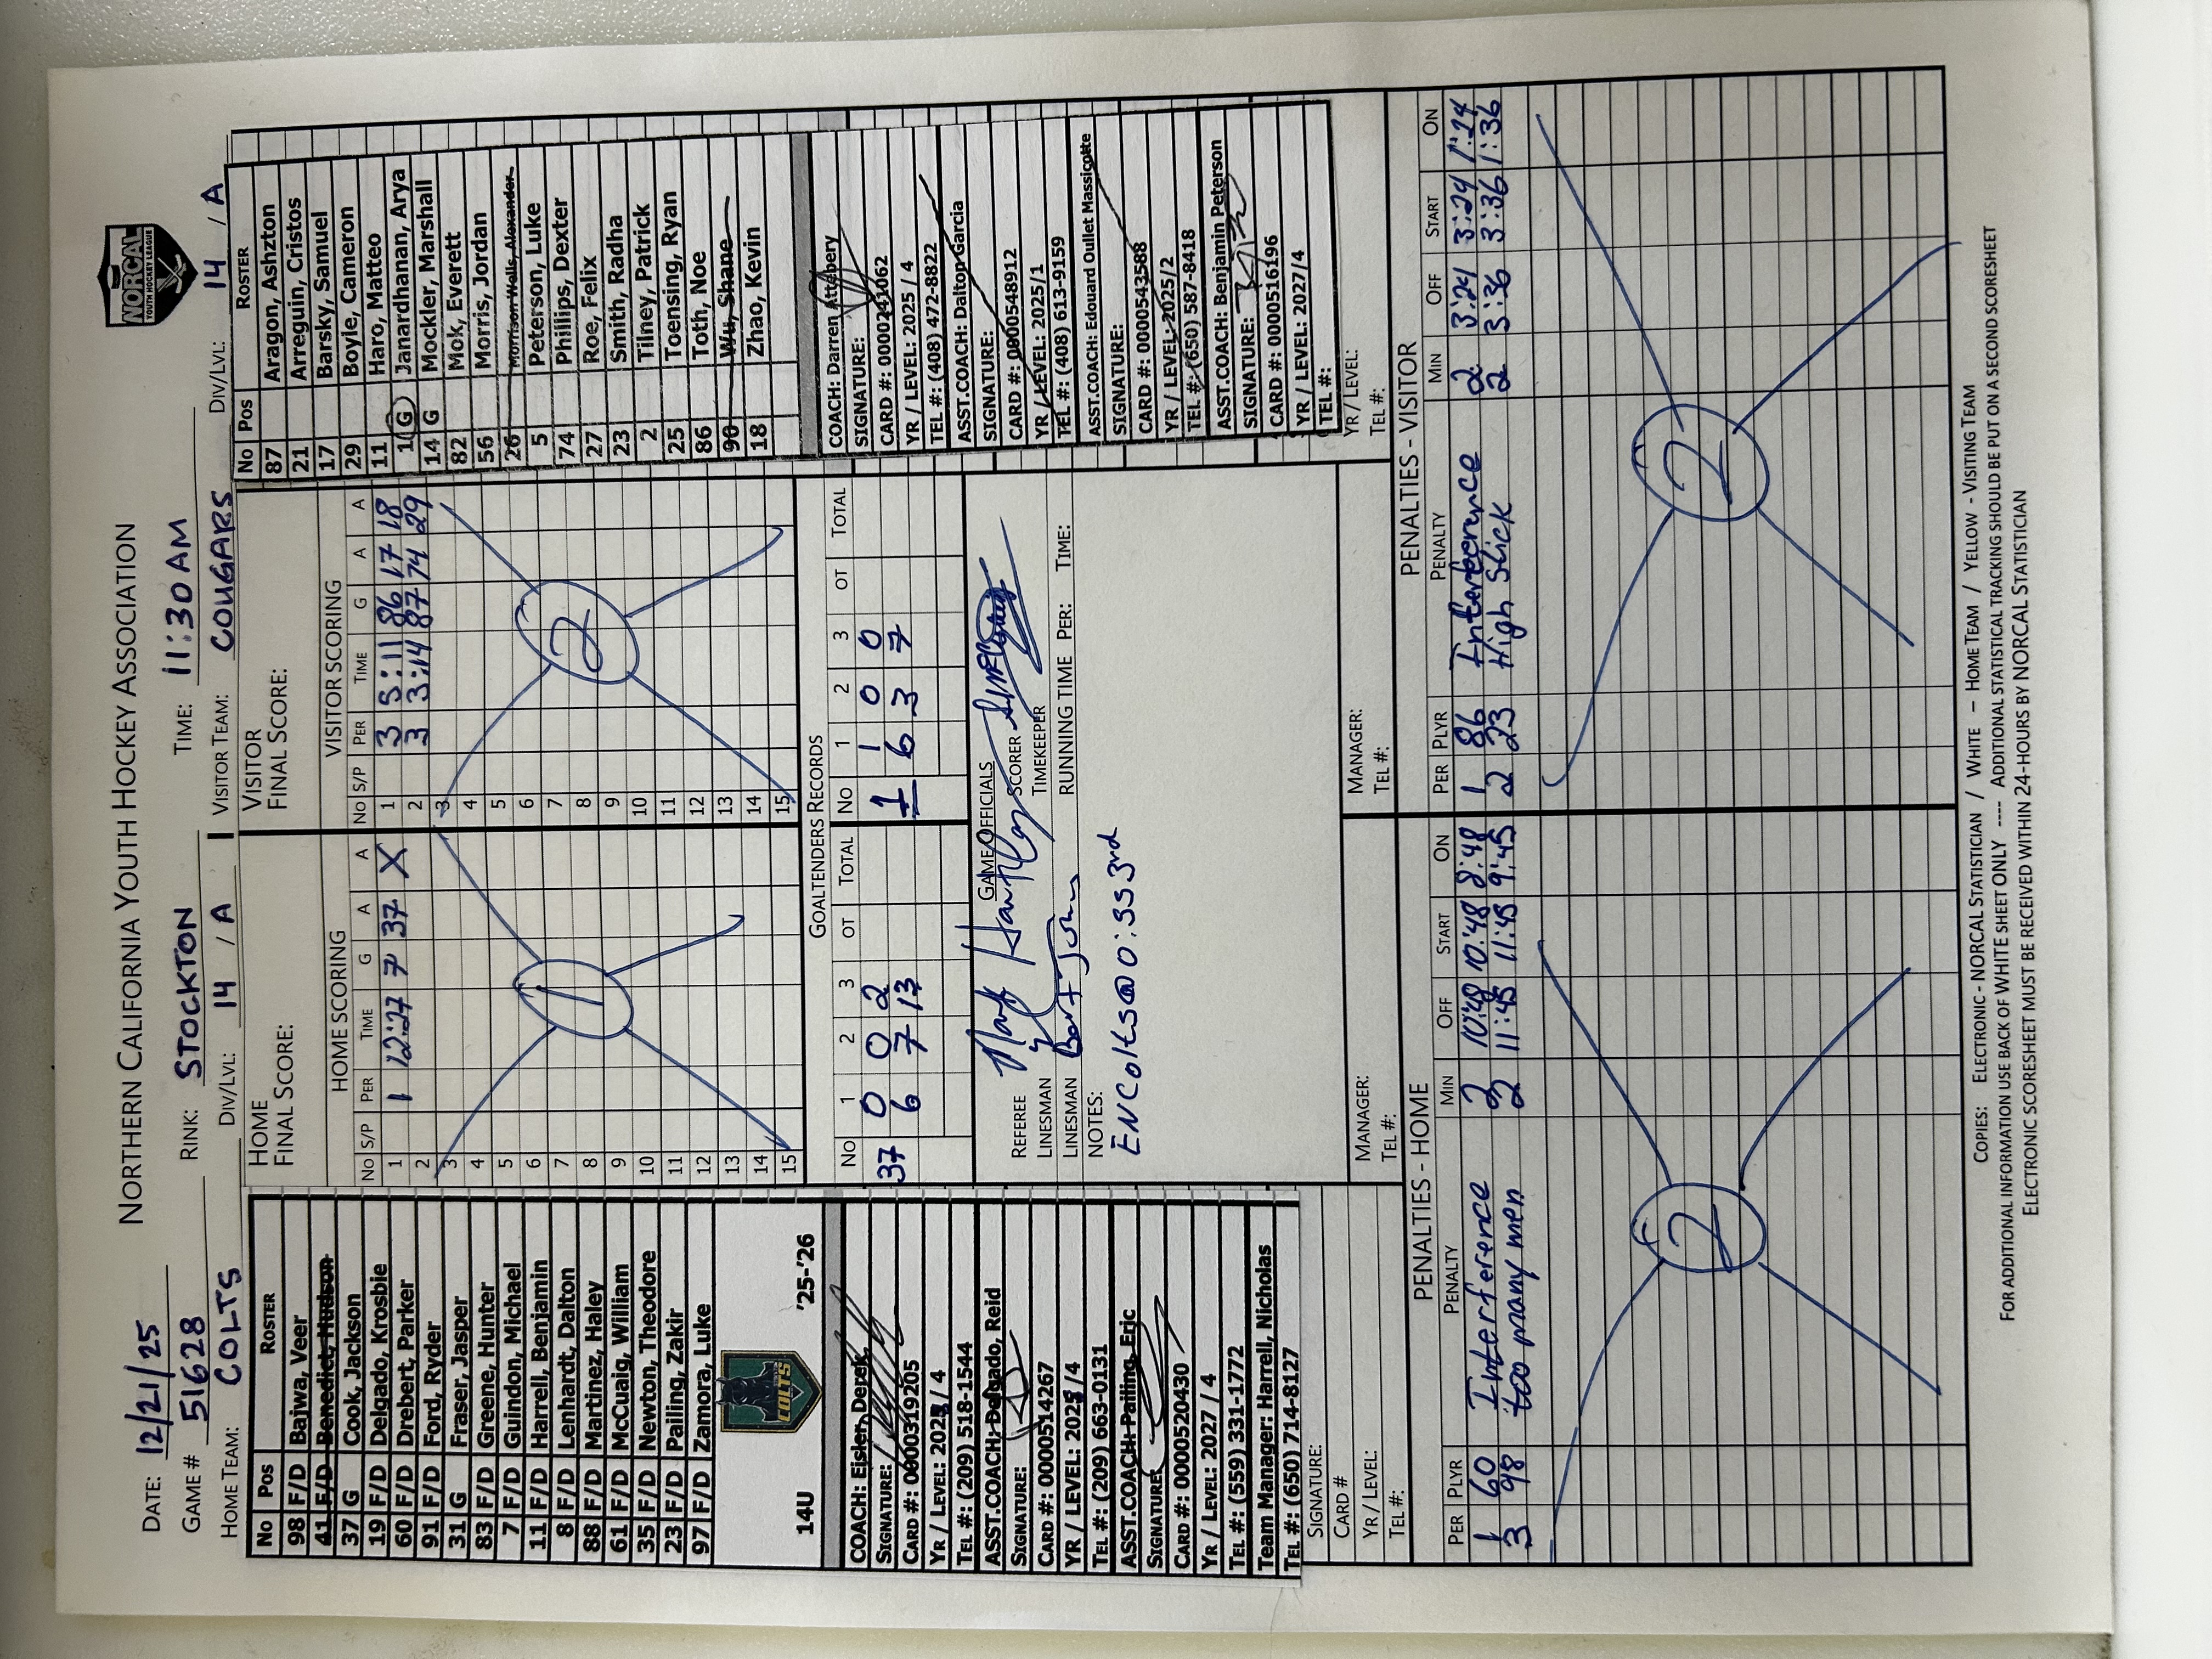 NORTHERN CALIFORNIA YOUTH HOCKEY ASSOCIATION
NORCAL
YOUTH HOCKEY LEAGUE
DATE: 12/21/25 RINK: STOCKTON TIME: 11:30 AM
GAME # 51628 DIV/LVL: 14 / A DIV/LVL: 14 / A
HOME TEAM: COLTS VISITOR TEAM: COUGARS
No Pos ROSTER
98 F/D Bajwa, Veer
41 F/D Benedict, Hudson
37 G Cook, Jackson
19 F/D Delgado, Krosbie
60 F/D Drebert, Parker
91 F/D Ford, Ryder
31 G Fraser, Jasper
83 F/D Greene, Hunter
7 F/D Guindon, Michael
11 F/D Harrell, Benjamin
8 F/D Lenhardt, Dalton
88 F/D Martinez, Haley
61 F/D McCuaig, William
35 F/D Newton, Theodore
23 F/D Pailing, Zakir
97 F/D Zamora, Luke
14U COLTS '25-'26
COACH: Eisler, Derek
SIGNATURE:
CARD #: 0000319205
YR / LEVEL: 2025 / 4
TEL #: (209) 518-1544
ASST.COACH: Delgado, Reid
SIGNATURE:
CARD #: 0000514267
YR / LEVEL: 2025 / 4
TEL #: (209) 663-0131
ASST.COACH: Pailing, Eric
SIGNATURE:
CARD #: 0000520430
YR / LEVEL: 2027 / 4
TEL #: (559) 331-1772
Team Manager: Harrell, Nicholas
TEL #: (650) 714-8127
SIGNATURE:
CARD #
YR / LEVEL:
TEL #:
HOME
FINAL SCORE:
HOME SCORING
No S/P PER TIME G A A
1 1 12:27 7 37 X
2
3
4
5
6
7
8
9
10
11
12
13
14
15
1
VISITOR
FINAL SCORE:
VISITOR SCORING
No S/P PER TIME G A A
1 3 5:11 86 17 18
2 3 3:14 87 74 29
3
4
5
6
7
8
9
10
11
12
13
14
15
2
GOALTENDERS RECORDS
No 1 2 3 OT TOTAL No 1 2 3 OT TOTAL
37 0 0 2 1 1 0 0
6 7 13 6 3 7
GAME OFFICIALS
REFEREE Mark Hartley SCORER
LINESMAN TIMEKEEPER
LINESMAN RUNNING TIME PER: TIME:
NOTES:
EN Colts @ 0:55 3rd
MANAGER:
TEL #:
MANAGER:
TEL #:
No Pos ROSTER
87 Aragon, Ashzton
21 Arreguin, Cristos
17 Barsky, Samuel
29 Boyle, Cameron
11 Haro, Matteo
1 G Janardhanan, Arya
14 G Mockler, Marshall
82 Mok, Everett
56 Morris, Jordan
26 Morrison-Wells, Alexander
5 Peterson, Luke
74 Phillips, Dexter
27 Roe, Felix
23 Smith, Radha
2 Tilney, Patrick
25 Toensing, Ryan
86 Toth, Noe
90 Wu, Shane
18 Zhao, Kevin
COACH: Darren Attebery
SIGNATURE:
CARD #: 0000243062
YR / LEVEL: 2025 / 4
TEL #: (408) 472-8822
ASST.COACH: Dalton Garcia
SIGNATURE:
CARD #: 0000548912
YR / LEVEL: 2025/1
TEL #: (408) 613-9159
ASST.COACH: Edouard Oullet Massicotte
SIGNATURE:
CARD #: 0000543588
YR / LEVEL: 2025/2
TEL #: (650) 587-8418
ASST.COACH: Benjamin Peterson
SIGNATURE:
CARD #: 0000516196
YR / LEVEL: 2027/4
TEL #:
YR / LEVEL:
TEL #:
PENALTIES - HOME
PER PLYR PENALTY MIN OFF START ON
1 60 Interference 2 10:48 10:48 8:48
3 98 too many men 2 11:45 11:45 9:45
2
PENALTIES - VISITOR
PER PLYR PENALTY MIN OFF START ON
1 86 Interference 2 3:24 3:24 1:24
2 23 High Stick 2 3:36 3:36 1:36
2
COPIES: ELECTRONIC - NORCAL STATISTICIAN / WHITE – HOME TEAM / YELLOW - VISITING TEAM
FOR ADDITIONAL INFORMATION USE BACK OF WHITE SHEET ONLY ---- ADDITIONAL STATISTICAL TRACKING SHOULD BE PUT ON A SECOND SCORESHEET
ELECTRONIC SCORESHEET MUST BE RECEIVED WITHIN 24-HOURS BY NORCAL STATISTICIAN